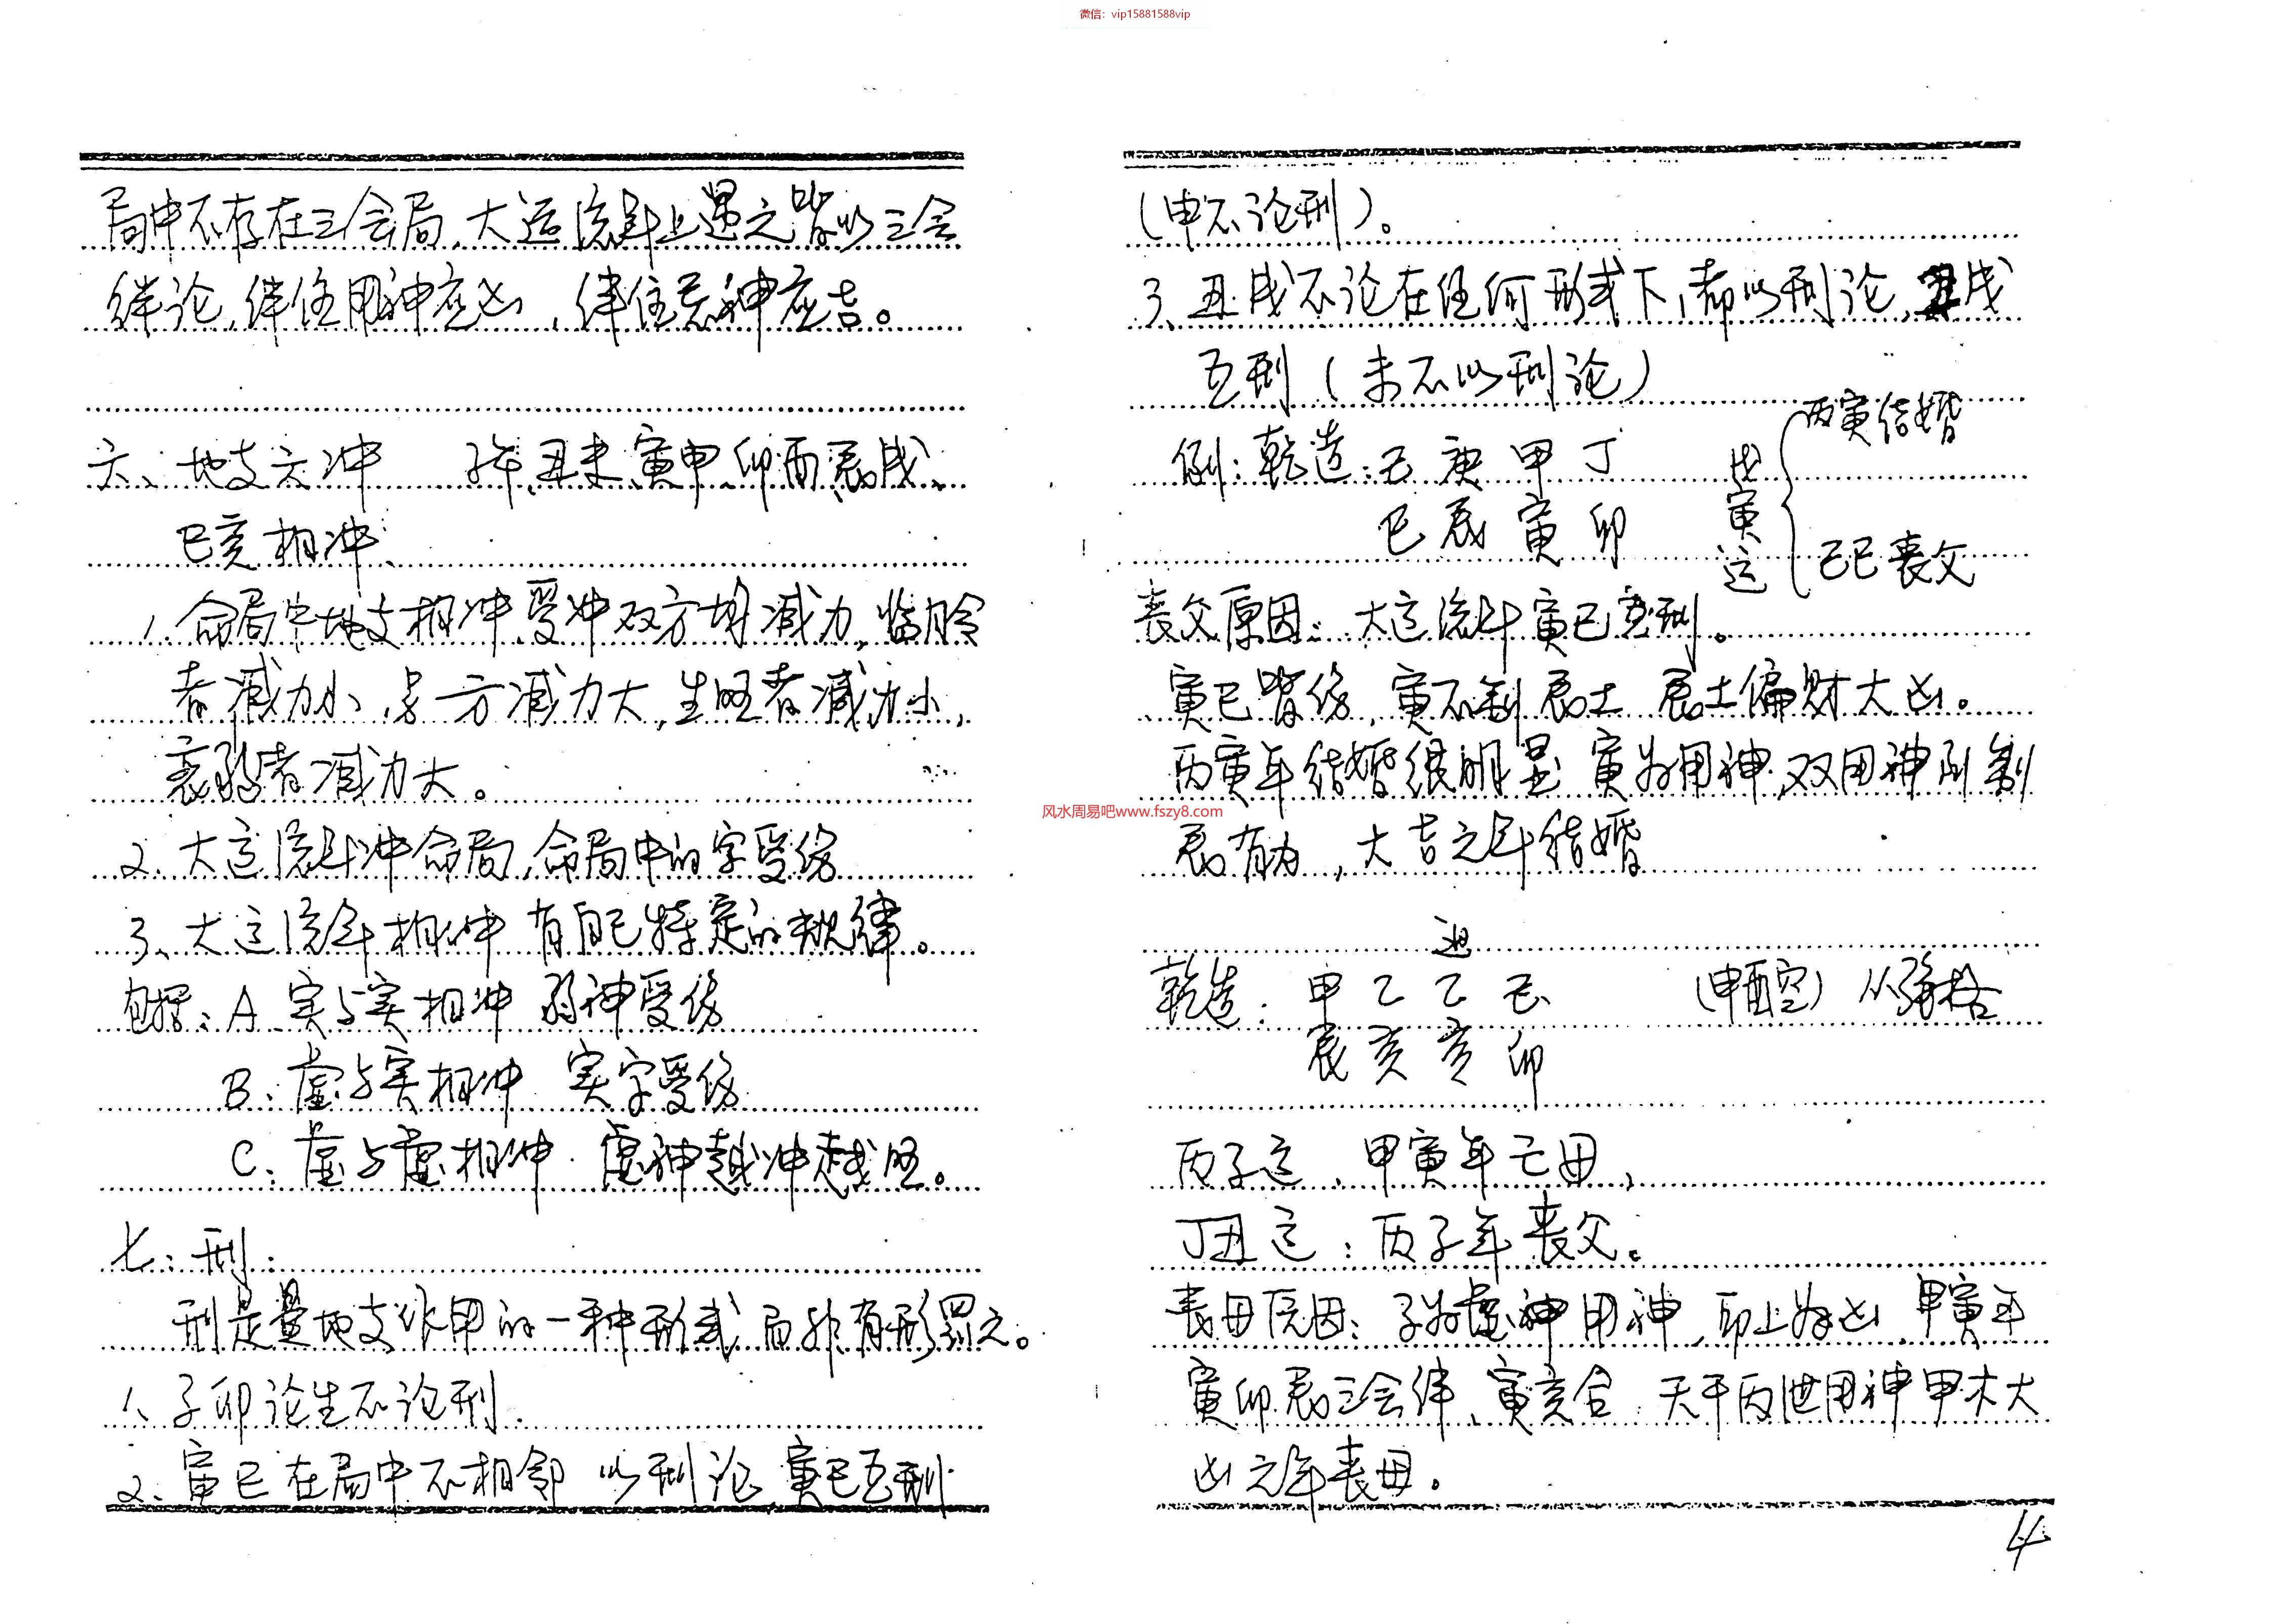 微信：vip15881588vip
局中不存在三会局，大运流年上遇之皆以三会
绊论，绊住用神应凶，绊住忌神应吉。
六、地支六冲 子午、丑未、寅申、卯酉、辰戌、
巳亥相冲、
1、命局中地支相冲、受冲双方均减力，临月令
者减力小、另一方减力大，生旺者减力小，
衰弱者减力大。
2、大运流年冲命局，命局中的字受伤
3、大运流年相冲 有自己特定的规律。
包括：A、实与实相冲 弱神受伤
B：虚与实相冲 实字受伤
C：虚与虚相冲 虚神越冲越旺。
七：刑：
刑是量地支作用的一种形式 而非有形罪之。
1、子卯论生不论刑.
2、寅巳在局中不相邻 以刑论 寅巳互刑
（申不论刑）。
3、丑戌不论在任何形式下，都以刑论，丑戌
互刑（未不以刑论）
丙寅结婚
例：乾造：己 庚 甲 丁 戊
巳 辰 寅 卯 寅
运 己巳丧父
丧父原因：大运流年寅巳互刑。
寅巳皆伤，寅不制辰土 辰土偏财大凶。
丙寅年结婚很明显 寅为用神，双用神所制
辰有力，大吉之年结婚
乾造：甲 乙 乙 己 （申酉空）从强格
辰 亥 亥 卯
丙子运、甲寅年亡母，
丁丑运：丙子年丧父。
丧母原因：子为虚神用神，印上为凶，甲寅年
寅卯辰三会绊、寅亥合 天干丙泄用神甲木大
凶之年丧母。
风水周易吧www.fszy8.com
4